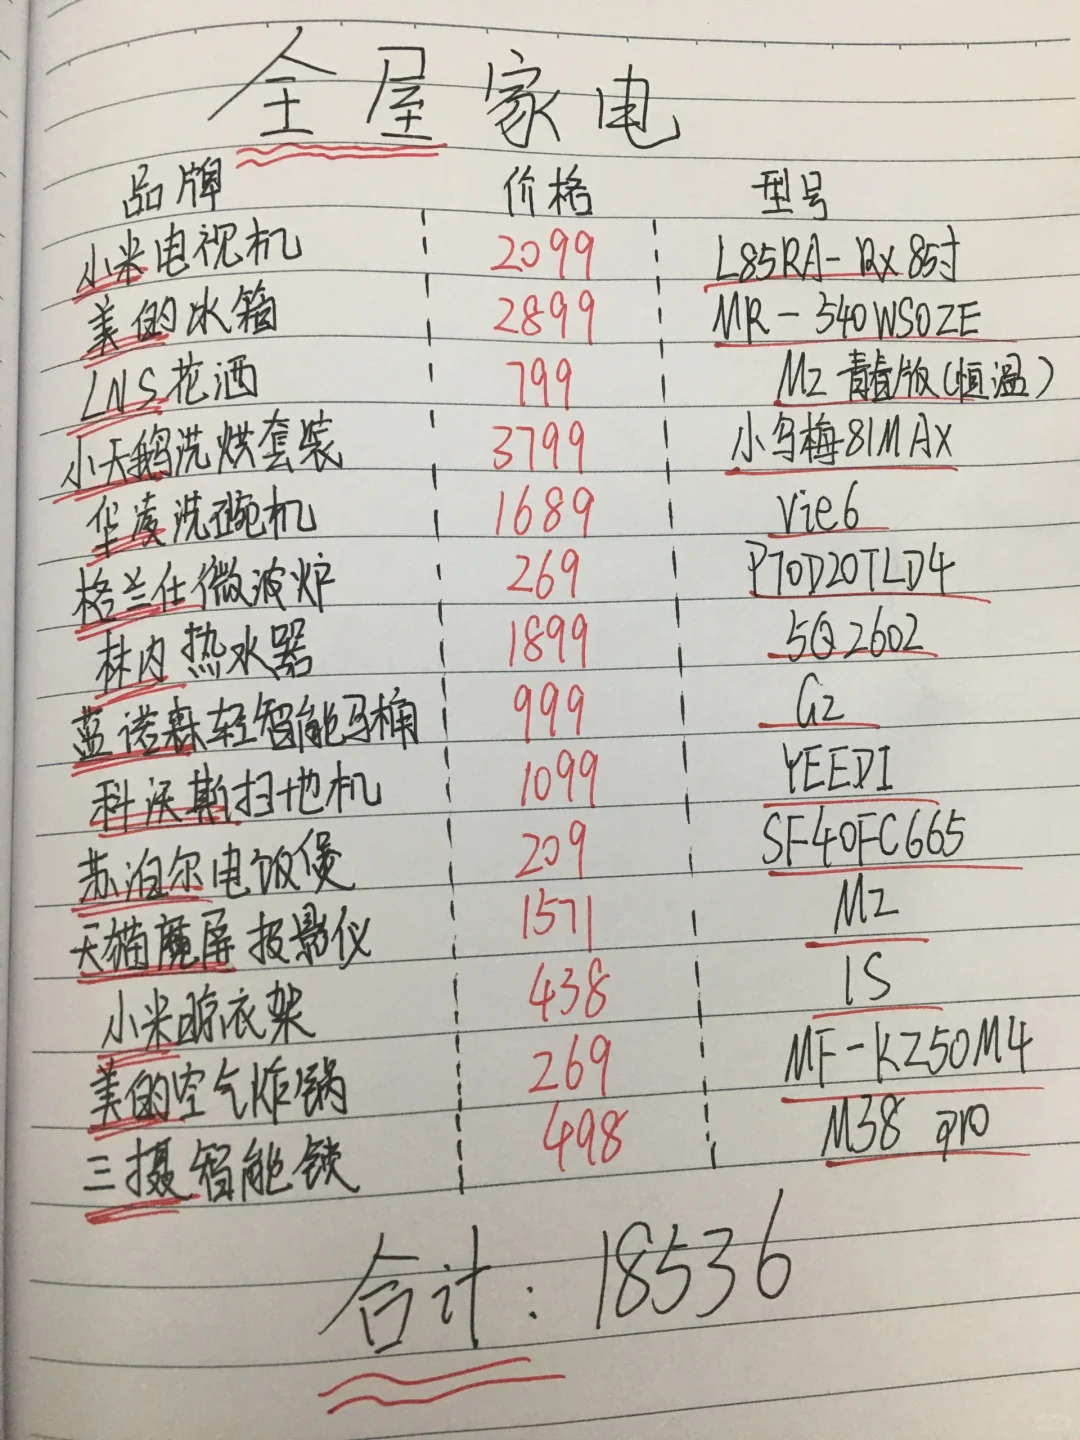 全屋家电
品牌 价格 型号
小米电视机 2099 L85RA-RX 85寸
美的冰箱 2899 MR-540WSOZE
LNS花洒 799 M2青春版(恒温)
小天鹅洗烘套装 3799 小乌梅81MAX
华凌洗碗机 1689 Vie6
格兰仕微波炉 269 P70D20TLD4
林内热水器 1899 5Q2602
蓝诺森轻智能马桶 999 G2
科沃斯扫地机 1099 YEEDI
苏泊尔电饭煲 209 SF40FC665
天猫魔屏投影仪 1571 M2
小米晾衣架 438 1S
美的空气炸锅 269 MF-KZ50M4
三摄智能锁 498 M38 pro
合计:18536